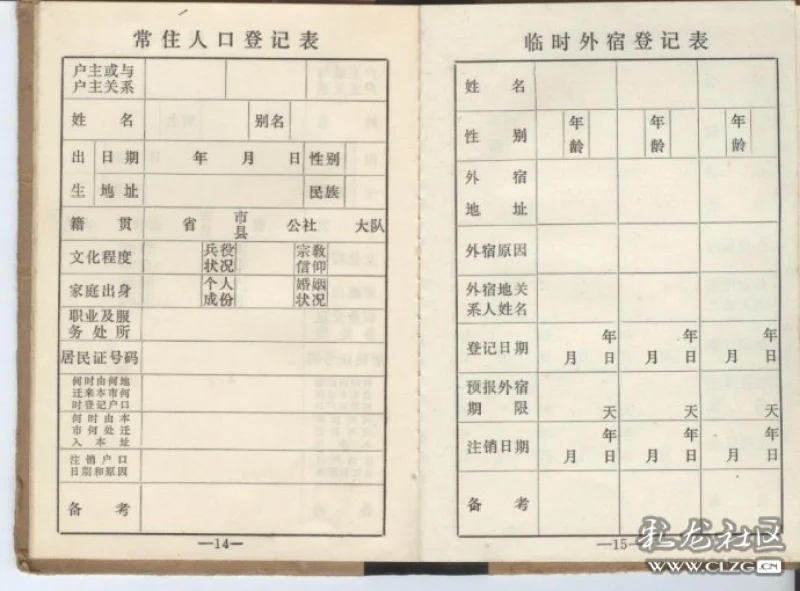 常住人口登记表
户主或与
户主关系
姓名 别名
出 日期 年 月 日 性别
生 地址 民族
籍贯 省 市 公社 大队
县
文化程度 兵役 宗教
状况 信仰
家庭出身 个人 婚姻
成份 状况
职业及服
务处所
居民证号码
何时由何地
迁来本市何
时登记户口
何时由本
市何处迁
入本址
注销户口
日期和原因
备考
—14—
临时外宿登记表
姓名
性别 年 年 年
龄 龄 龄
外宿
地址
外宿原因
外宿地关
系人姓名
登记日期 年 年 年
月 日 月 日 月 日
预报外宿
期限 天 天 天
注销日期 年 年 年
月 日 月 日 月 日
备考
—15—
彩龙社区
WWW.CLZG.CN